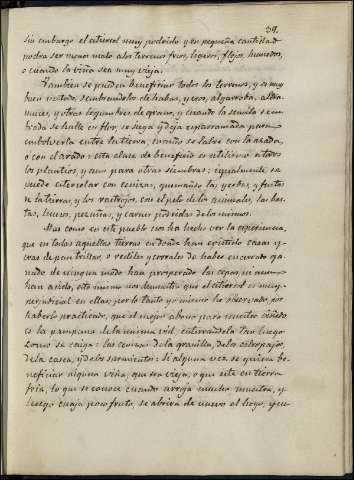 39.
sin embargo el estiercol muy podrido y en pequeña cantidad
podra ser menos malo a los terrenos frios, ligeros, flojos, humedos,
o cuando la viña sea muy vieja.
Tambien se pueden beneficiar todos los terrenos, y es muy
buen metodo, sembrandolos de habas, yeros, algarroba, alta-
muces, y otras legumbres de grano, y cuando la semilla sem-
brada se halle en flor, se siega y deja desparramada para
embolverla entre la tierra, cuando se labre con la azada,
o con el arado: esta clase de beneficio es utilisimo a todos
los plantios, y aun para otras siembras: igualmente se
puede estercolar con cenizas, quemando las yerbas, y frutos
de la tierra, y los rastrojos, con el pelo de los animales, las has-
tas, huesos, pezuñas, y carnes podridas de los mismos.
Mas como en este pueblo nos ha hecho ver la esperiencia,
que en todas aquellas tierras en donde han existido casas u
eras de pan trillar, o rediles y corrales de haber encerrado ga-
nado de ningun modo han prosperado las cepas, ni aun
han asido, esto mismo nos demuestra que el estiercol es muy
perjudicial en ellas; por lo tanto yo mismo he observado, por
haberlo practicado, que el mejor abono para nuestro viñedo
es la pampana de la misma vid, enterrandola tan luego
como se caiga: las cenizas de la granilla, de los escobajos,
de la casca, y de los sarmientos: Si alguna vez se quiere be-
neficiar alguna viña, que sea vieja, o que esté en tierra
fria, lo que se conoce cuando arroja mucha muestra, y
luego cuaja poco fruto, se abrira de nuevo el hoyo, y en